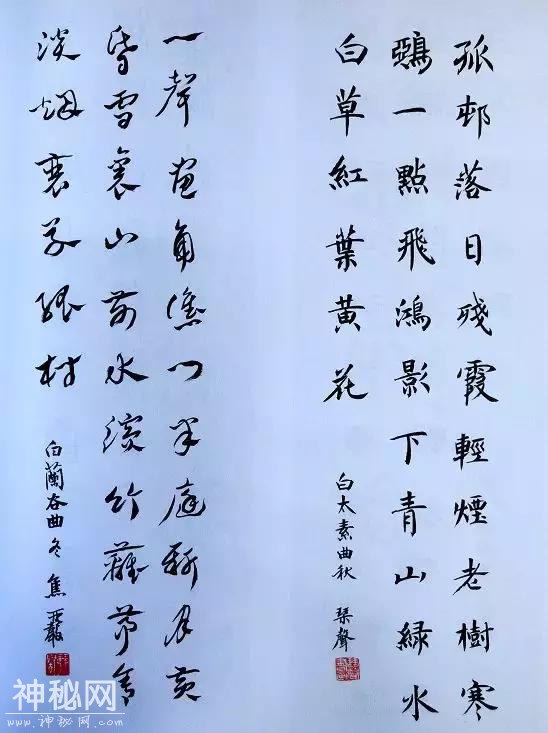 孤邨落日殘霞輕煙老樹寒
鵶一點飛鴻影下青山綠水
白草紅葉黃花
白太素曲秋 琹聲
一聲畫角譙門半庭新月黃
昏雪裏山前水濱竹籬茅舍
淡烟衰草孤村
白蘭谷曲冬 焦
神秘网
www.神秘网.com